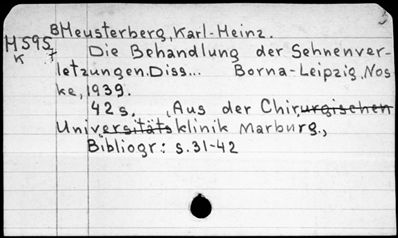 BMeusterberg, Karl-Heinz.
M595
K t
Die Behandlung der Sehnenver-
letzungen. Diss... Borna-Leipzig, Nos-
ke, 1939.
42 s. (Aus der Chirurgischen
Universitätsklinik Marburg.,
Bibliogr: s. 31-42